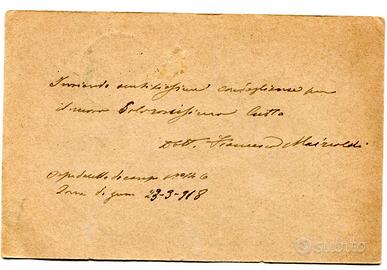 Inviando sentitissime condoglianze per
il nuovo dolorosissimo lutto
Dott. Francesco
Ospedaletto da campo N°
Zona di guerra 23-3-918
SUBITO